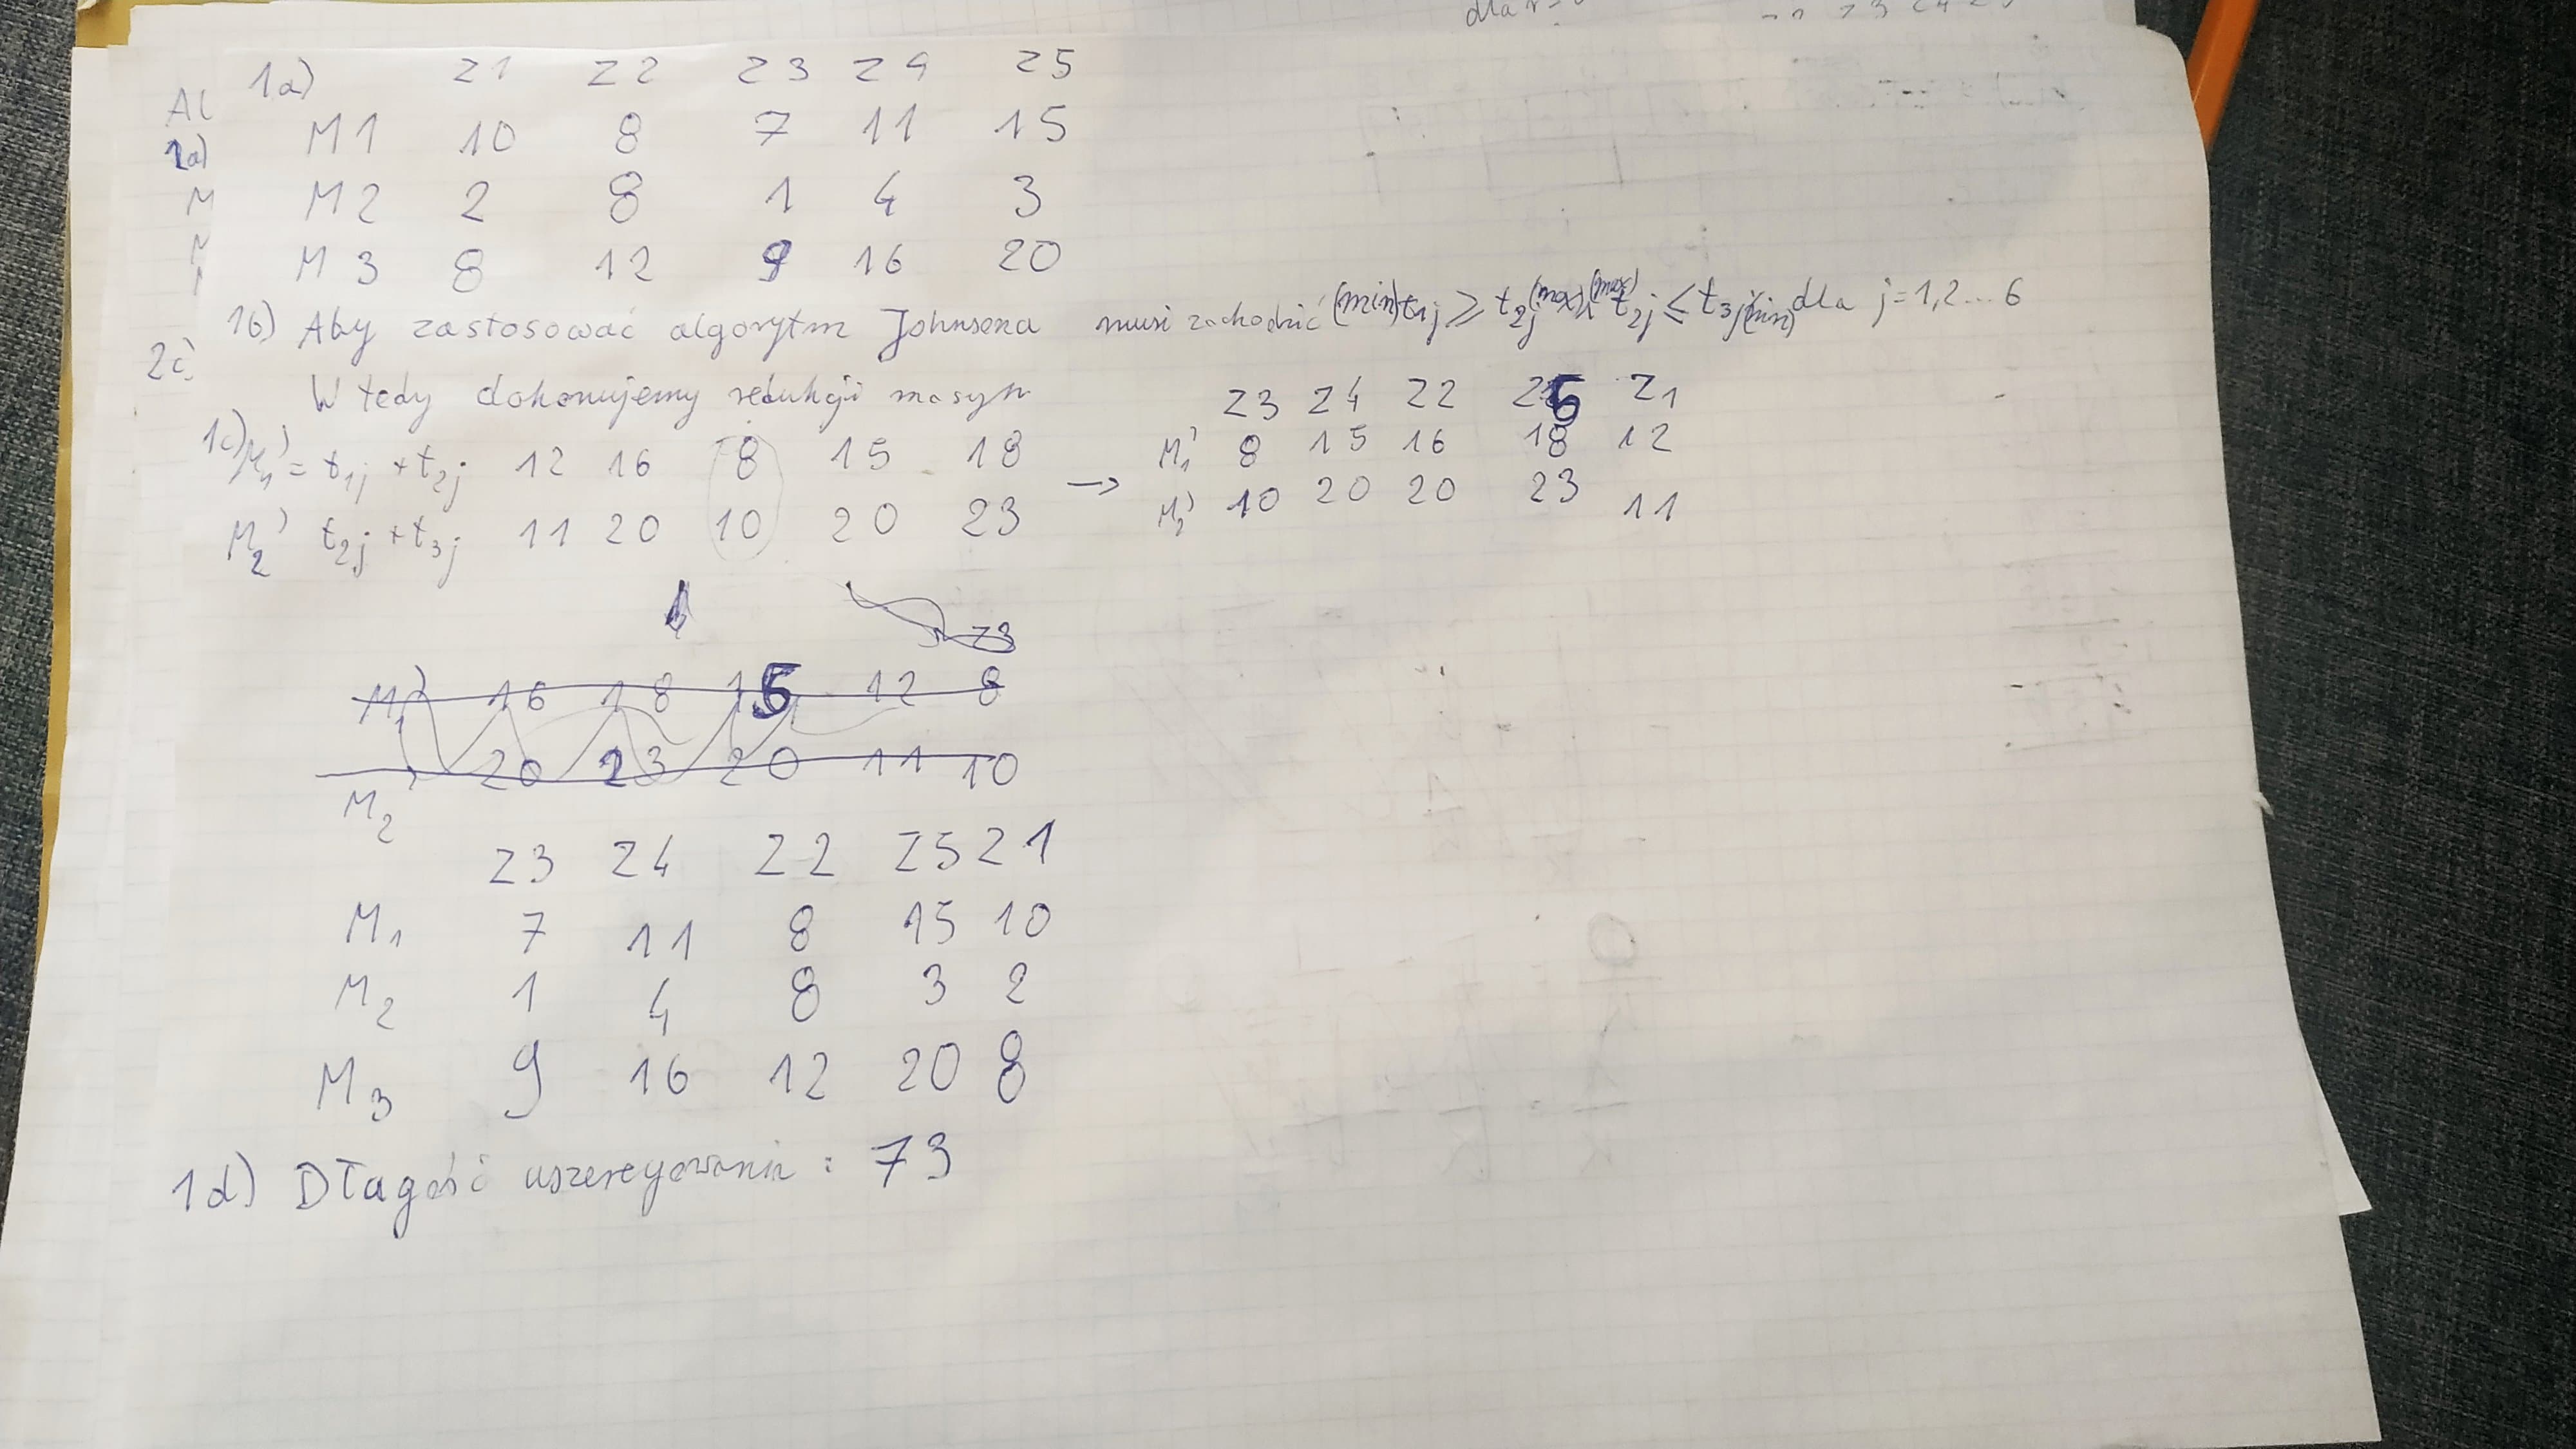 dla
Al
2a)
M
2c)
1a) Z1 Z2 Z3 Z4 Z5
M1 10 8 7 11 15
M2 2 8 1 4 3
M3 8 12 9 16 20
1b) Aby zastosować algorytm Johnsona musi zachodzić (min) t1j ≥ t2j (max) ∧ (max) t2j ≤ t3j (min) dla j=1,2...6
Wtedy dokonujemy redukcji maszyn
1c) M1' = t1j + t2j 12 16 8 15 18
M2' t2j + t3j 11 20 10 20 23
→
Z3 Z4 Z2 Z5 Z1
M1' 8 15 16 18 12
M2' 10 20 20 23 11
Z3
M1' 16 18 15 12 8
M2' 20 23 20 11 10
Z3 Z4 Z2 Z5 Z1
M1 7 11 8 15 10
M2 1 4 8 3 2
M3 9 16 12 20 8
1d) Długość uszeregowania : 73